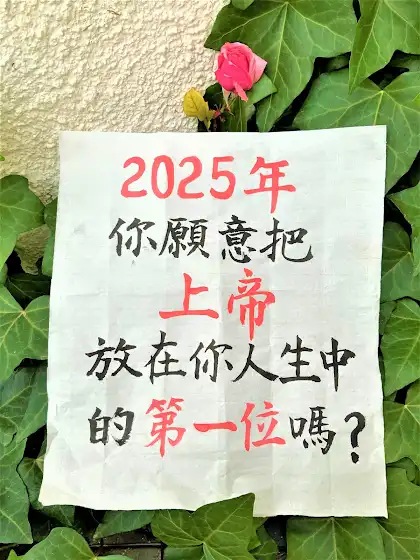 2025年
你願意把
上帝
放在你人生中
的第一位嗎?